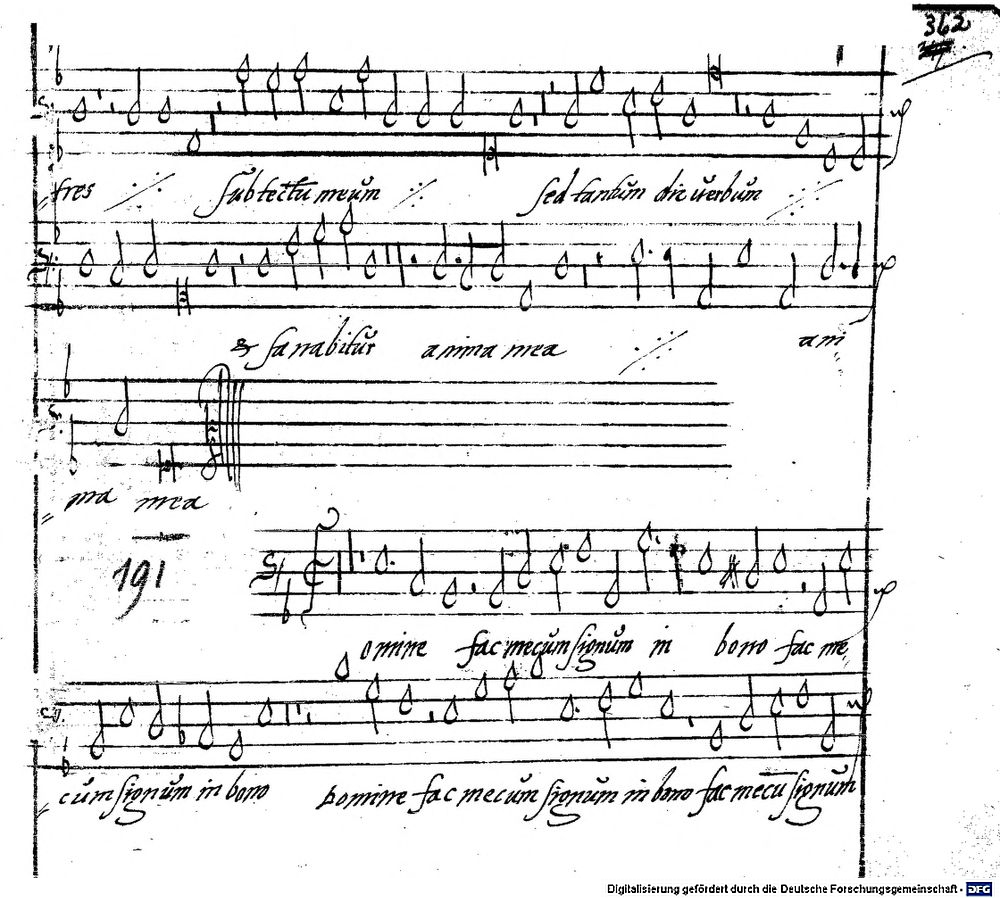 362
tres ./. sub tectũ meum ./. sed tantum dic verbum ./.
& sanabitur anima mea ./. ani
ma mea
191
omine fac mecum signum in bono fac me
cum signum in bono Domine fac mecum signum in bono fac mecũ signum
Digitalisierung gefördert durch die Deutsche Forschungsgemeinschaft - DFG